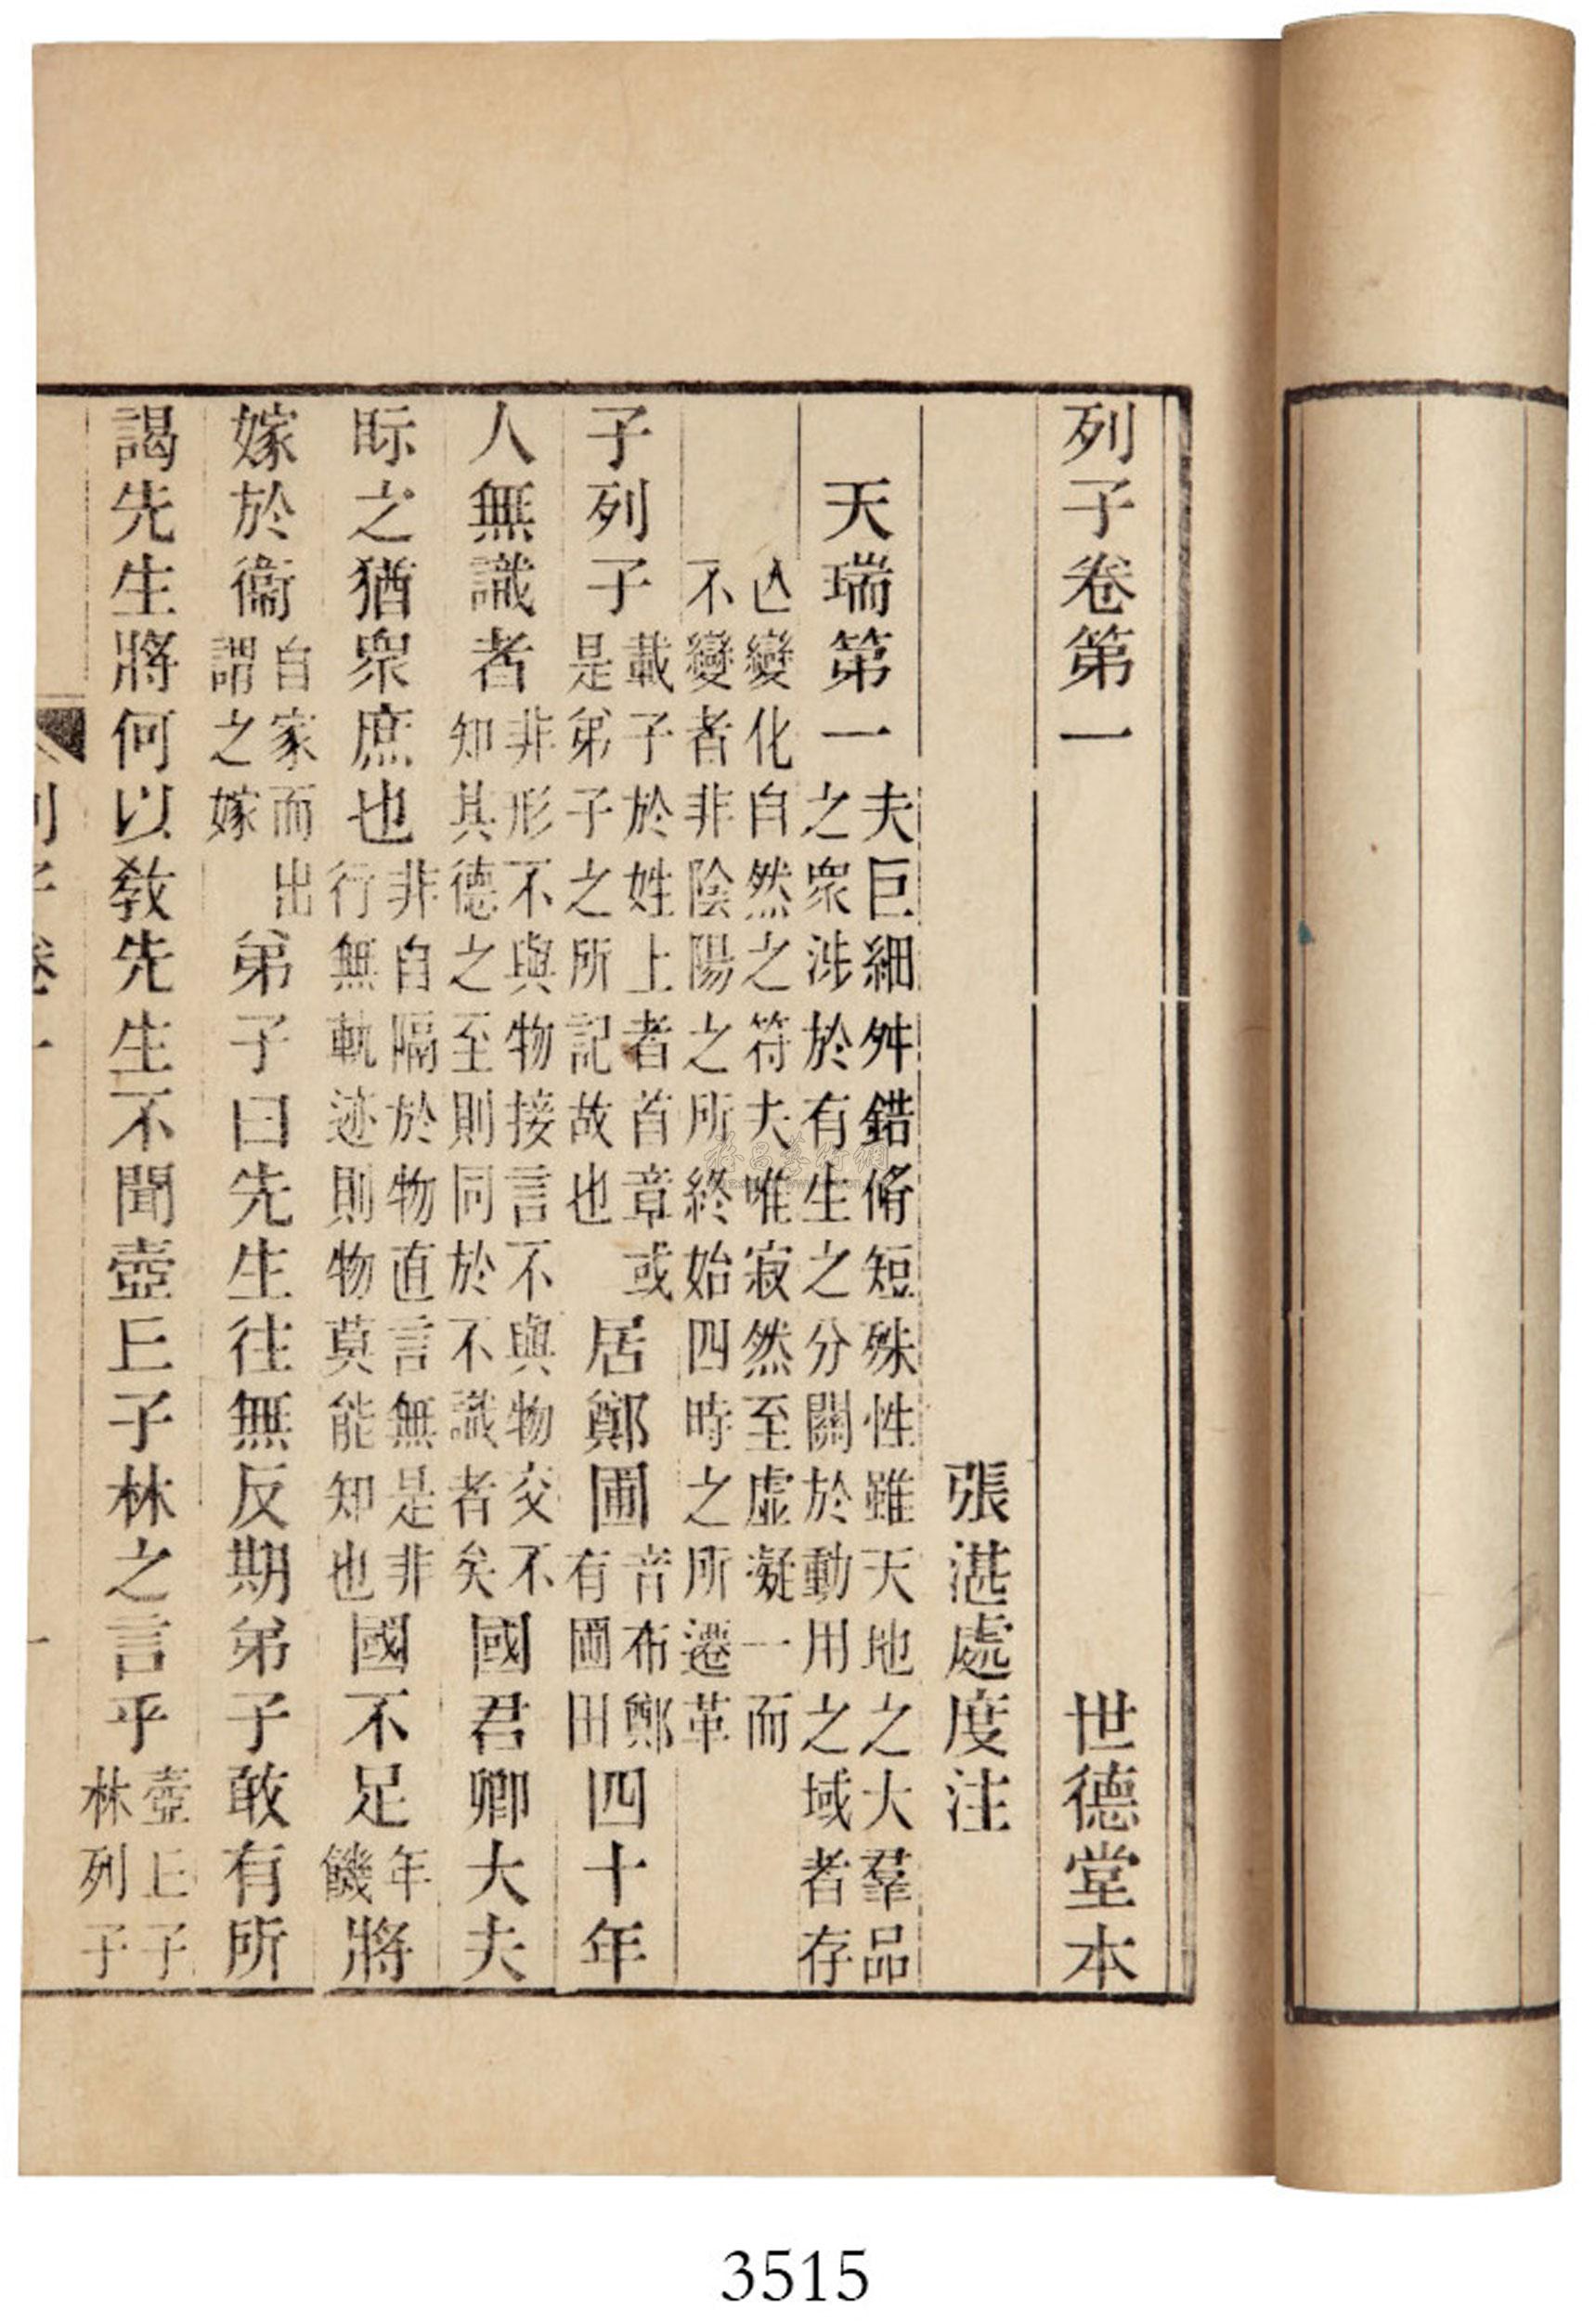 列子卷第一 世德堂本
張湛處度注
天瑞第一 夫巨細舛錯脩短殊性雖天地之大羣品
之衆涉於有生之分關於動用之域者存
亾變化自然之符夫唯寂然至虛凝一而
不變者非陰陽之所終始四時之所遷革
子列子 載子於姓上者首章或 是弟子之所記故也 居鄭圃 音布鄭 有圃田 四十年
人無識者 非形不與物接言不與物交不 知其德之至則同於不識者矣 國君卿大夫
眎之猶衆庶也 非自隔於物直言無是非 行無軌迹則物莫能知也 國不足 年 饑 將
嫁於衞 自家而出 謂之嫁 弟子曰先生往無反期弟子敢有所
謁先生將何以敎先生不聞壺𠀉子林之言乎 壺𠀉子 林列子
3515